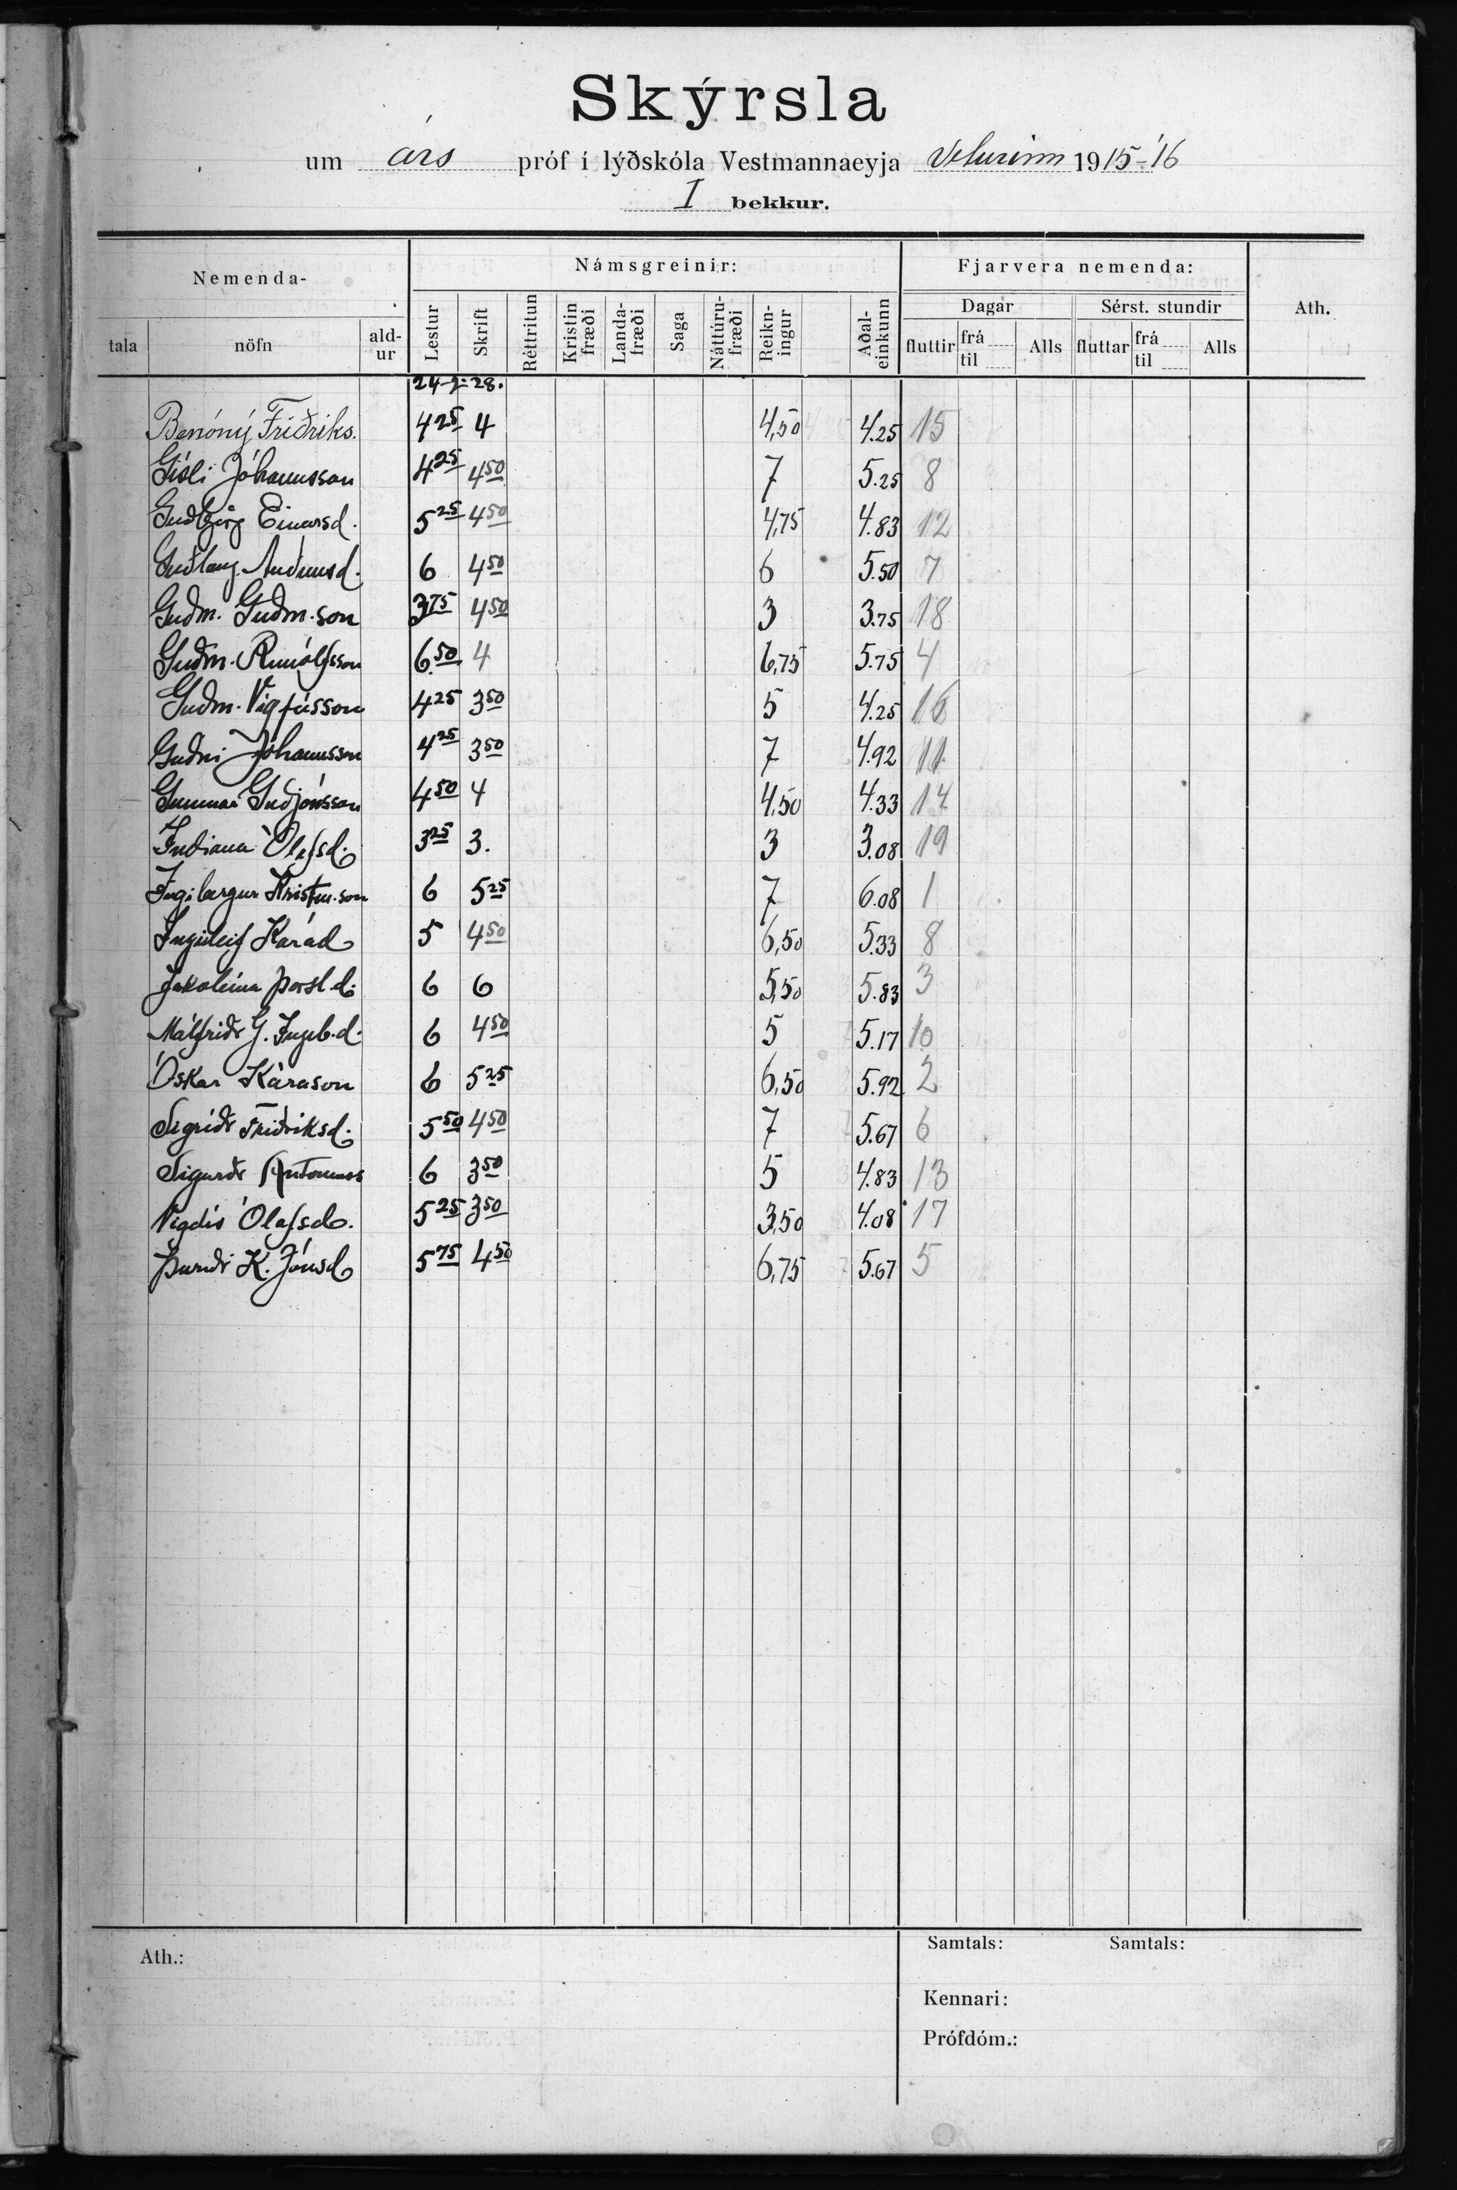 Skýrsla
um árs próf í lýðskóla Vestmannaeyja Veturinn 1915-'16
I bekkur.
Nemenda- Námsgreinir: Fjarvera nemenda: Ath.
tala nöfn ald-ur Lestur Skrift Réttritun Kristin fræði Landa-fræði Saga Náttúru-fræði Reikn-ingur Aðal-einkunn Dagar Sérst. stundir
fluttir frá til Alls fluttar frá til Alls
24-2-28.
Benóný Friðriks. 4 25 4 4,50 4.25 15
Gísli Jóhannsson 4 25 4 50 7 5.25 8
Guðbjörg Einarsd. 5 25 4 50 4,75 4.83 12
Guðlaug Auðunsd. 6 4 50 6 5.50 7
Guðm. Guðm.son 3 75 4 50 3 3.75 18
Guðm. Runólfsson 6 50 4 6,75 5.75 4
Guðm. Vigfússon 4 25 3 50 5 4.25 16
Guðni Jóhannsson 4 25 3 50 7 4.92 11
Gunnar Guðjónsson 4 50 4 4,50 4.33 14
Indiana Ólafsd. 3 25 3. 3 3.08 19
Ingibergur Kristm.son 6 5 25 7 6.08 1
Ingileif Kárad 5 4 50 6,50 5.33 8
Jakobína Þorst.d. 6 6 5,50 5.83 3
Málfriðr G. Ingib.d. 6 4 50 5 5.17 10
Óskar Kárason 6 5 25 6,50 5.92 2
Sigríðr Friðriksd. 5 50 4 50 7 5.67 6
Sigurðr Antonuss 6 3 50 5 4.83 13
Vigdís Ólafsd. 5 25 3 50 3,50 4.08 17
Þuriðr K. Jónsd 5 75 4 50 6,75 5.67 5
Ath.: Samtals: Samtals:
Kennari:
Prófdóm.: